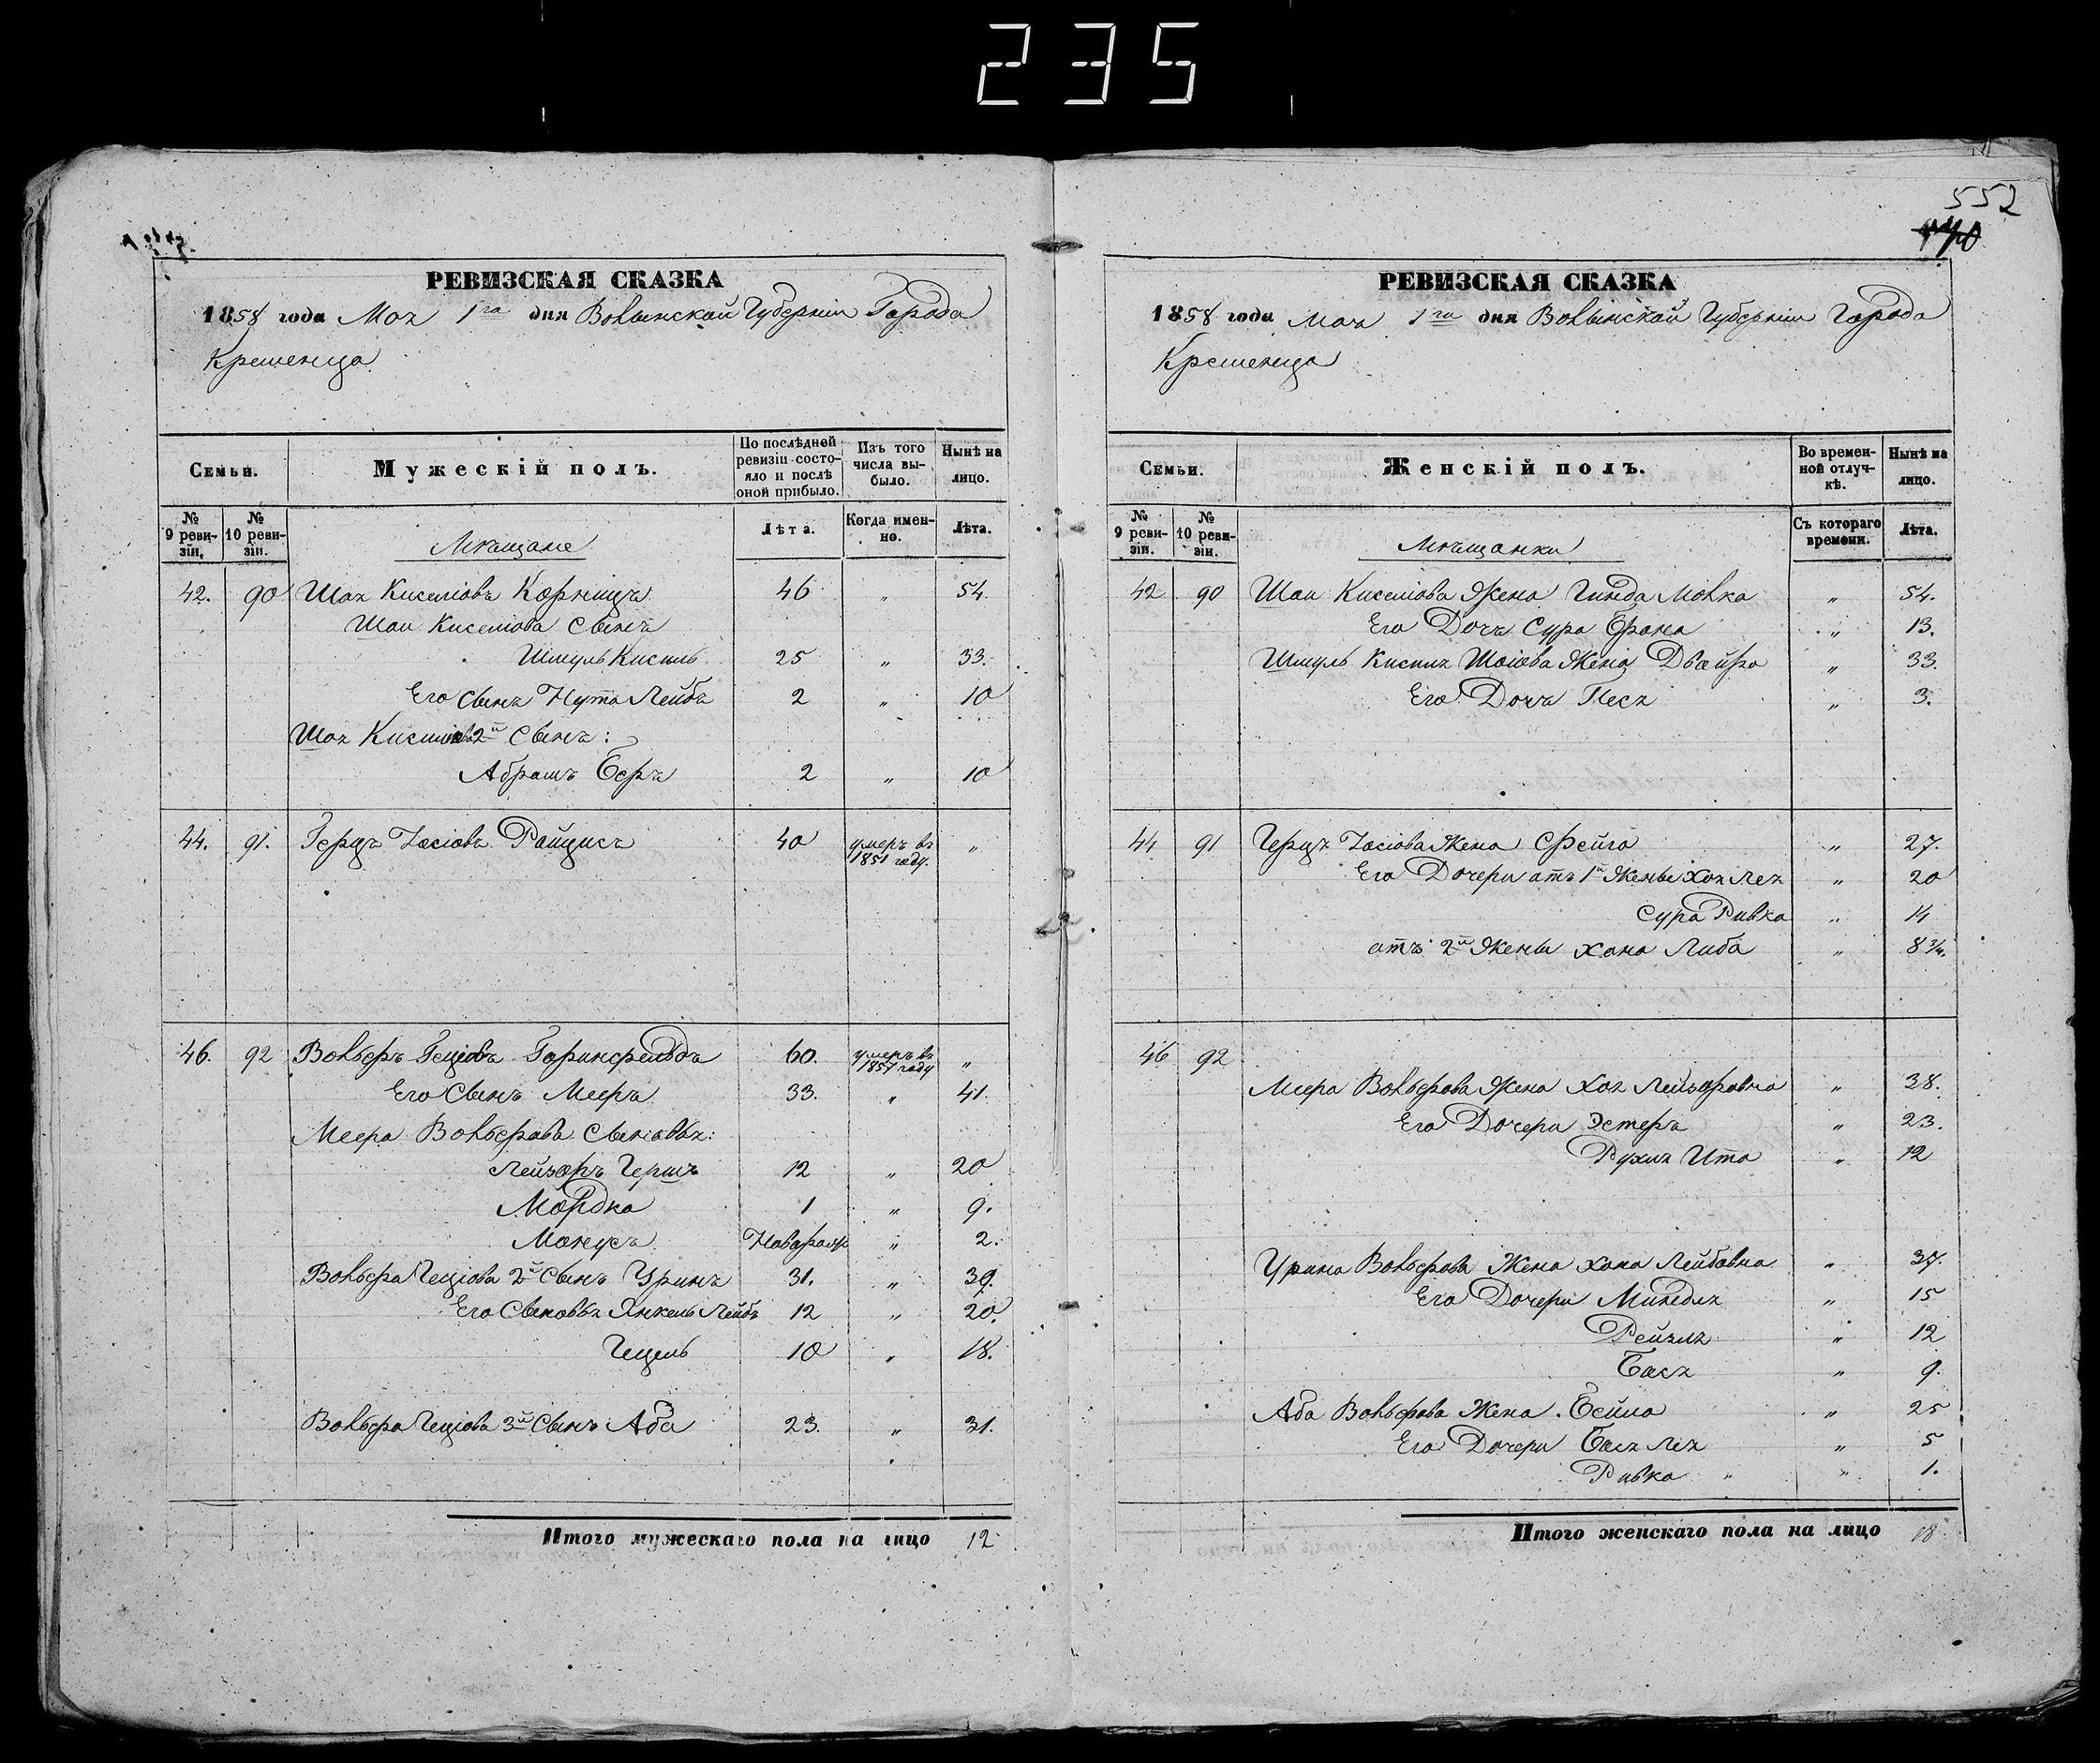 235
552
РЕВИЗСКАЯ СКАЗКА
1858 года Мая 1го дня Волынской Губерніи Города
Кременца
Семьи.
Мужескій полъ.
По послѣдней ревизіи состояло и послѣ оной прибыло.
Изъ того числа выбыло.
Нынѣ на лицо.
№ 9 ревизіи.
№ 10 ревизіи.
Мѣщане
Лѣта.
Когда именно.
Лѣта.
42. 90 Шая Киселіовъ Корницъ 46 " 54.
Шаи Киселіова Сынъ
Шмуль Кисиль 25 " 33.
Его Сынъ Нута Лейбъ 2 " 10
Шая Кисиліова 2й Сынъ:
Абрамъ Беръ 2 " 10
44. 91. Герцъ Іосіовъ Райцисъ 40 умеръ въ 1851 году. "
46. 92 Вольберъ Геціовъ Горинфельдъ 60. умеръ въ 1857 году "
Его Сынъ Мееръ 33. " 41.
Меера Вольберова Сыновья:
Лейзоръ Гершъ 12 " 20
Мордко 1 " 9.
Монусъ Новорож " 2.
Вольбера Геціова 2й Сынъ Уринъ 31. " 39.
Его Сыновья Янкель Лейбъ 12 " 20.
Гецель 10 " 18.
Вольбера Геціова 3й Сынъ Аба 23. " 31.
Итого мужескаго пола на лицо 12
РЕВИЗСКАЯ СКАЗКА
1858 года Мая 1го дня Волынской Губерніи Города
Кременца
Семьи.
Женскій полъ.
Во временной отлучкѣ.
Нынѣ на лицо.
№ 9 ревизіи.
№ 10 ревизіи.
Мѣщанки
Съ котораго времени.
Лѣта.
42 90 Шаи Киселіова Жена Гинда Молка " 54.
Его Дочь Сура Брана " 13.
Шмуль Кисиля Шоіова Жена Двойра " 33.
Его Дочь Песя " 3.
44 91 Герцъ Іосіова Жена Фейга " 27.
Его Дочери отъ 1й Жены Хая Лея " 20
Сура Ривка " 14
отъ 2й Жены Хана Либа " 8 3/4.
46 92
Меера Вольберова Жена Хая Лейзоровна " 38.
Его Дочери Эстеръ " 23.
Рухля Ита " 12
Урина Вольберова Жена Хана Лейбовна " 37.
Его Дочери Миндля " 15
Рейзля " 12
Бася " 9.
Аба Вольберова Жена Бейла " 25
Его Дочери Бася Лея " 5
Ривка " " 1.
Итого женскаго пола на лицо 18